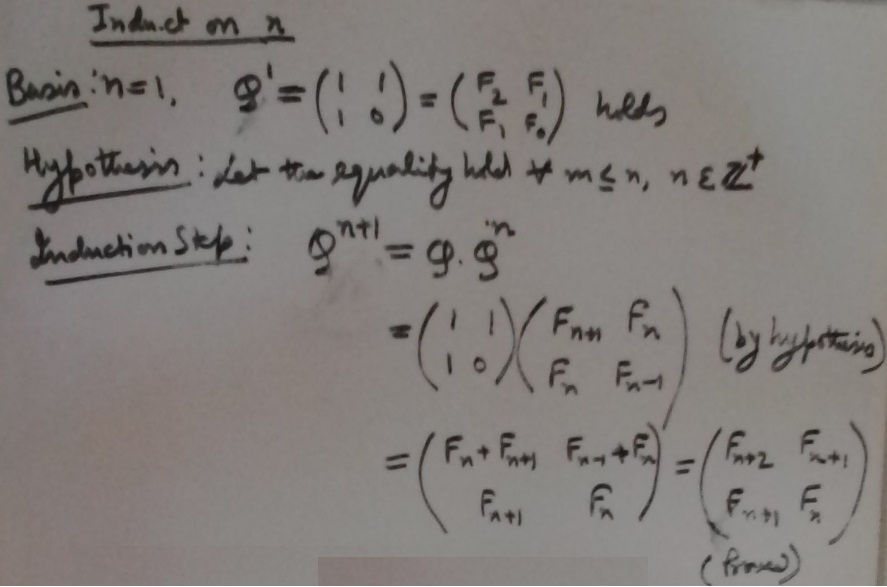 Induct on n
Basis: n=1, Q¹ = (1 1 / 1 0) = (F₂ F₁ / F₁ F₀) holds
Hypothesis: Let the equality hold ∀ m ≤ n, n ∈ ℤ⁺
Induction Step: Qⁿ⁺¹ = Q · Qⁿ
= (1 1 / 1 0)(Fₙ₊₁ Fₙ / Fₙ Fₙ₋₁) (by hypothesis)
= (Fₙ + Fₙ₊₁ Fₙ₋₁ + Fₙ / Fₙ₊₁ Fₙ) = (Fₙ₊₂ Fₙ₊₁ / Fₙ₊₁ Fₙ)
(Proved)